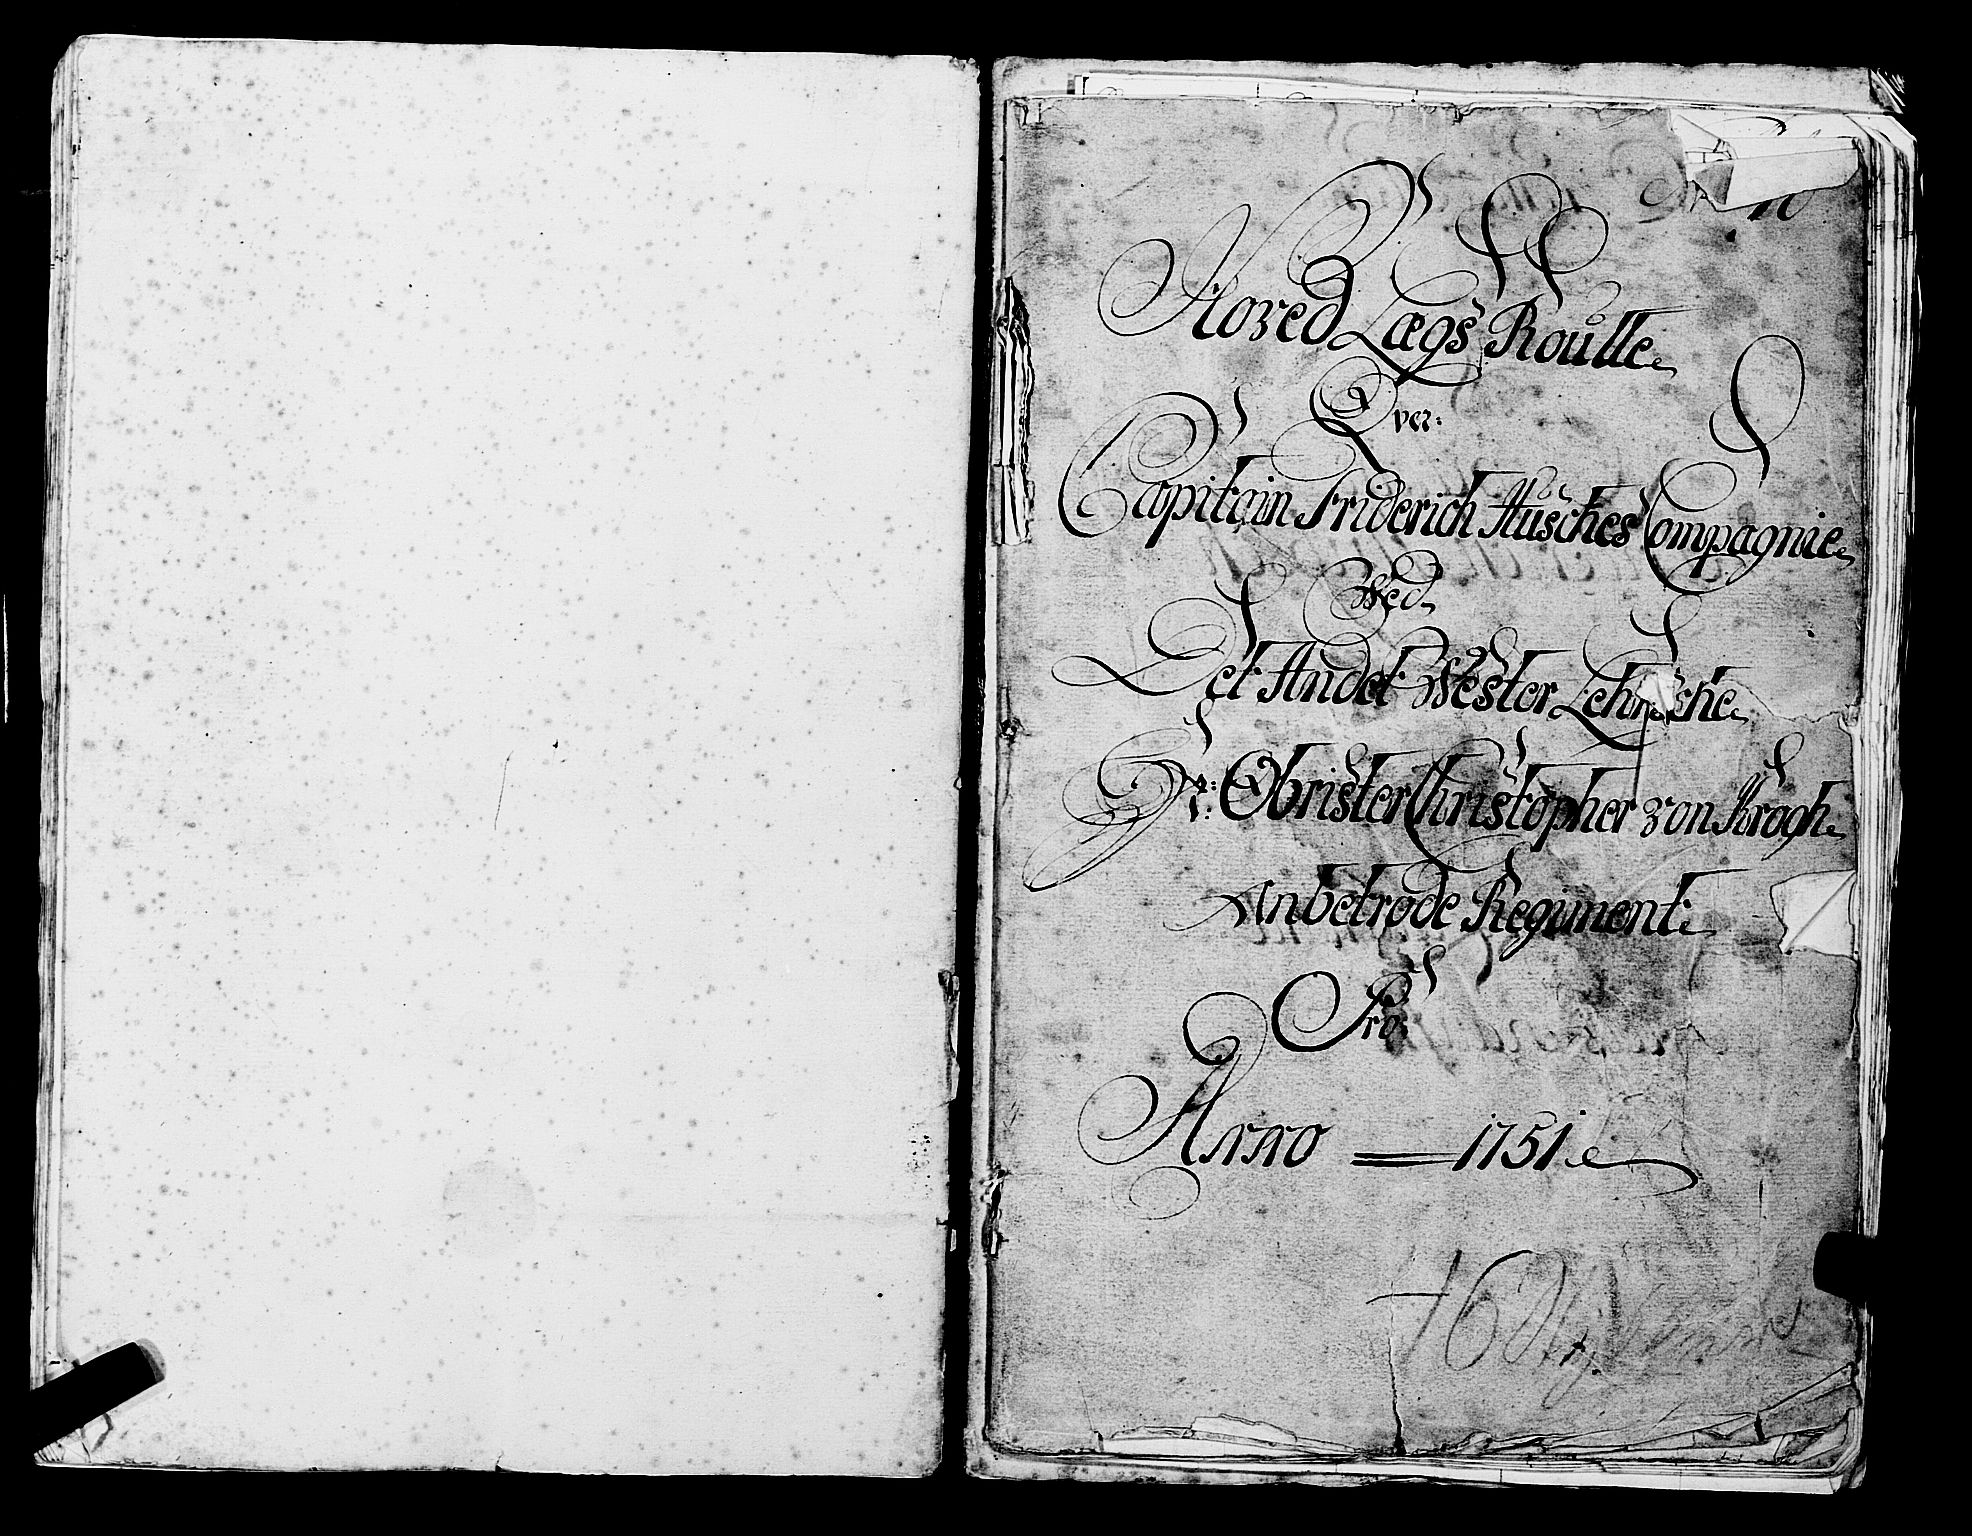 Hoved Lægs Roulle
Over:
Capitain Friderich Husches Compagnie
Wed
Det Andet Wester Lehnske
Hr: Obrister Christopher von Krogh
Anbetrode Regiment
Pro
Anno 1751